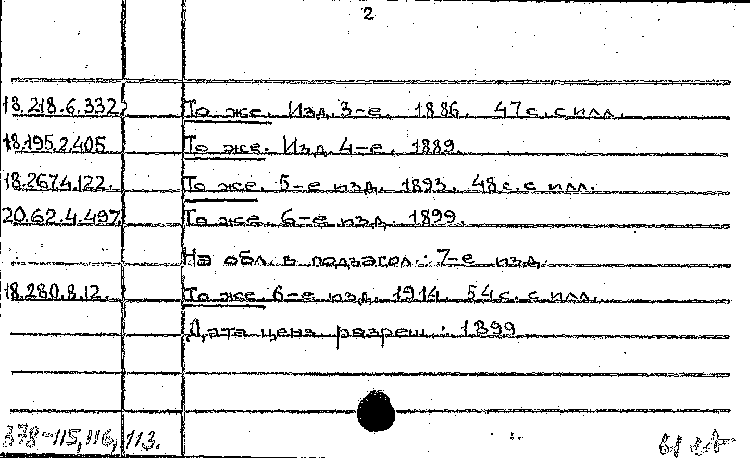 2
18.218.6.332 То же. Изд. 3-е. 1886. 47 с. с илл.
18.195.2.405 То же. Изд. 4-е. 1889.
18.267.4.122. То же. 5-е изд. 1893. 48 с. с илл.
20.62.4.497 То же. 6-е изд. 1899.
На обл. в подзагол.: 7-е изд.
18.280.8.12. То же. 6-е изд. 1914. 54 с. с илл.
Дата ценз. разреш.: 1899
378-115, 116, 113.